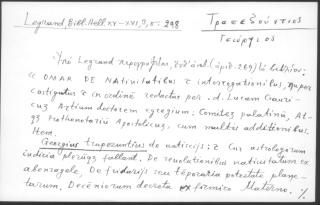 Legrand, Bibl. Hell. XV-XVI, 3, σ. 298
Τραπεζούντιος
Γεώργιος
Ὑπὸ Legrand περιγράφεται,
OMAR DE NAtivitatibus et interrogationibus, nuper
castigatus et in ordinē redactus per .d. Lucam Gauricu
Artium doctorem egregium; Comitē palatinū, At-
Prothonotariū Apostolicus, cum multis additionibus.
Item.
Georgius trapezuntius de Cur astrologorum
iudicia plerūqz fallant. De revolutionibus nativitatum ex
abenragele, De seu tēporaria potestate plane-
tarum, Decēniorum decreta ex firmico Materno. %